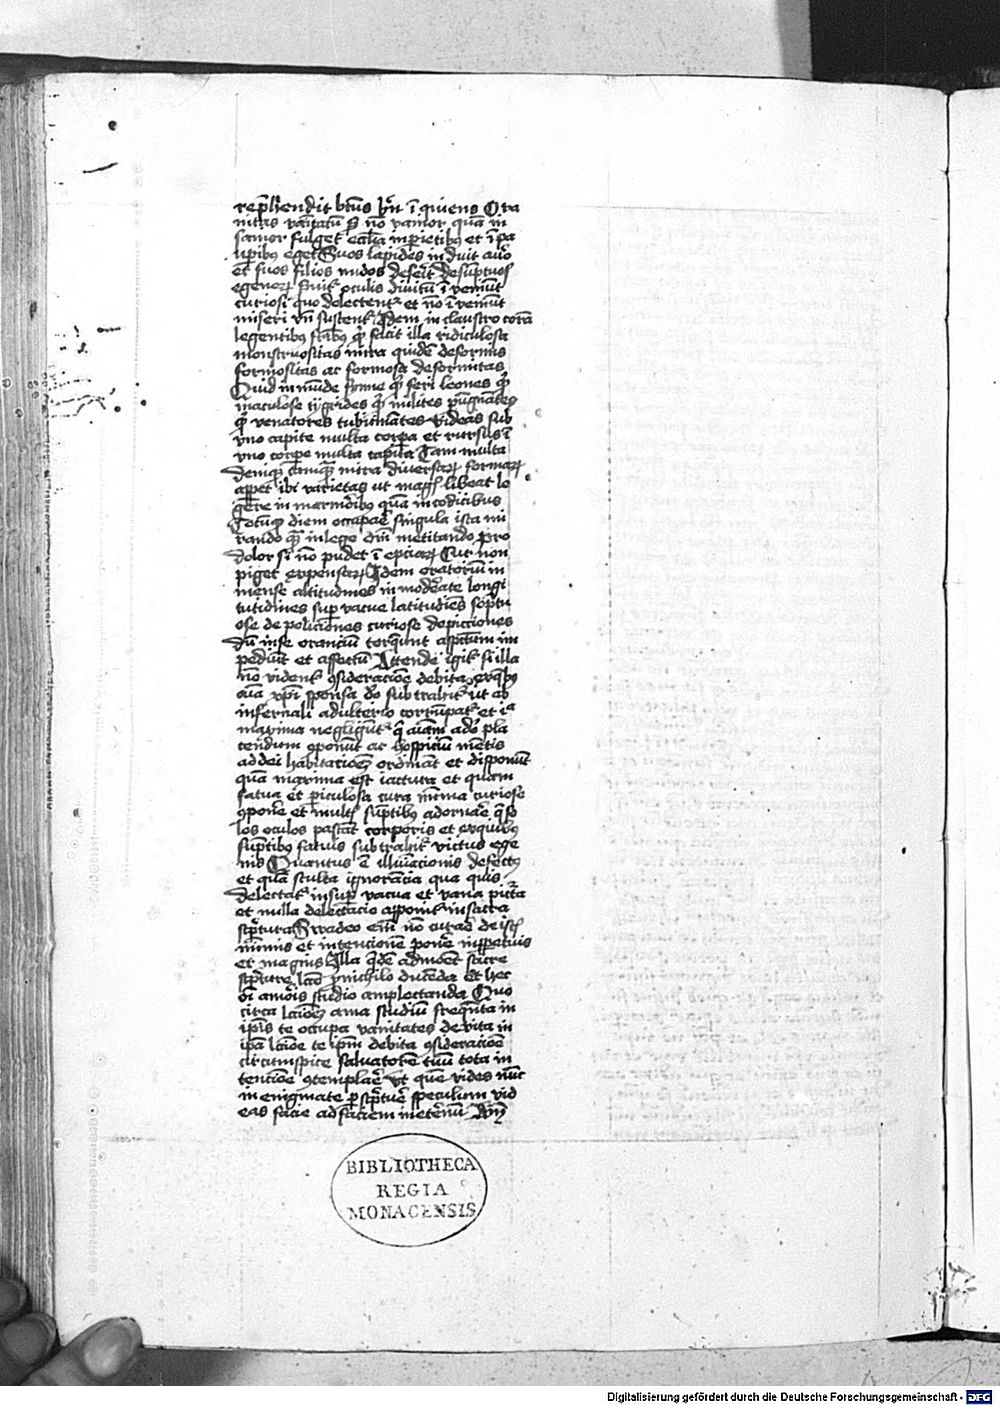 rep̄hendit btūs br̄n ī quiens O va
nitas vanitatū S nō vanior quā in
sanior fulget ecclīa in parietibꝰ et ī pa
upibꝰ eget Suos lapides induit auro
et suos filios nudos deserit de sumptuos
egenorꝝ seruit᷑ oculis diuitū ī veniūt
curiosi quo delectent᷑ et nō ī veniūt
miseri vn̄ sustent᷑ Idem in claustro corā
legentibꝰ frībꝰ qͥ facit illa ridiculosa
monstruositas mira quidē deformis
formositas ac formosa deformitas
Quid in mūde symie qͥ feri leones qͥ
maculose tygrides qͥ milites pugnātes
qͥ venatores tubicinātes Videas sub
vno capite multa corpa et rursus ī
vno corpe multa capita Tam multa
deniqꝫ tamqꝫ mira diuersarꝝ formarꝝ
apparet ibi varietas ut magis libeat le
gere in marmoribꝰ quā in codicibus
Totumqꝫ diem occupare singula ista mi
rando quā in lege dei meditando pro
dolor si nō pudet ī eptiarꝝ Cur non
piget expensarꝝ Idem oratoriū in
mense altitudines in moderate longi
tudines sup vacue latitudies sōptu
ose de policiones curiose depicciones
dū in se oranciū torquent aspectum im
pediūt et affectū Attende igit᷑ si illa
nō vident᷑ ꝯsideracione debita ex quibꝰ
aīa xp̄i sponsa deo subtrahit᷑ ut ab
infernali adulterio corrūpat᷑ et ita
maxima negligunt᷑ que aīam adeo pla
cendum ꝯponūt ac hospiciū mentis
ad dei habitacionē ordinant et disponūt
quā maxima est iactura et quam
fatua et piculosa cura minima curiose
ꝯponere et multis sūptibꝰ adornare que so
los oculos pascant corporis et ex quibus
sūptibus fatuis subtrahit᷑ victus ege
nis Quantus ē illuīacionis defectꝰ
et quā stulta ignorancia qua quis
delectat᷑ in sup vacua et vana pictura
et nulla delectacio apponit᷑ in sacra
scriptura Swadeo enī nō curare de istis
minimis et intencionē ponere in ppetuis
et magnis Illa quidē admonet sacre
scripture lectio pro nichilo ducenda Et hec
oī amoris studio amplectanda Quo
circa lectionē ama studiū frequēta in
ip̄is te occupa vanitates deuita in
ip̄a lectione te ip̄m debita ꝯsideracione
circumspice saluatorē tuū tota in
tencione ꝯtemplare ut quē vides nūc
in enigmate p scripture speculum vid
eas facie ad faciem in eternū Amē
BIBLIOTHECA
REGIA
MONACENSIS
Digitalisierung gefördert durch die Deutsche Forschungsgemeinschaft - DFG